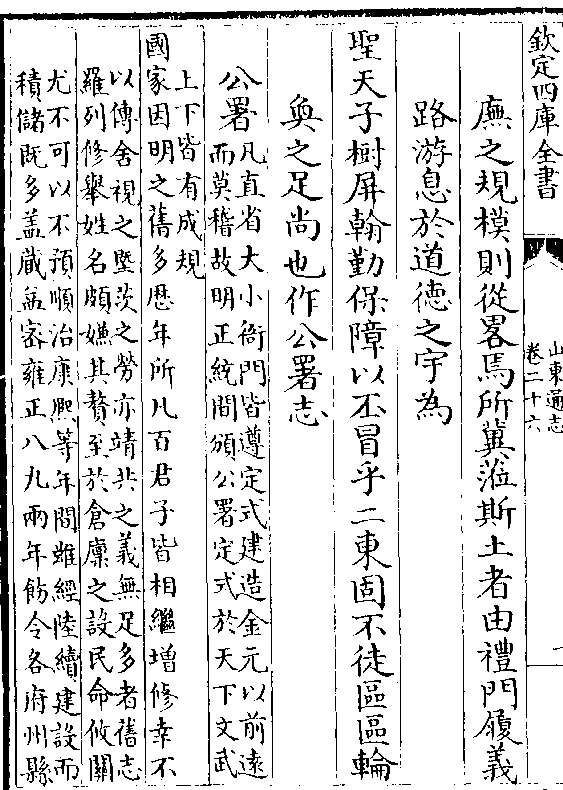 欽定四庫全書
山東通志
卷二十六
一
廡之規模則從畧焉所冀蒞斯土者由禮門履義
路游息於道德之宇為
聖天子樹屏翰勤保障以丕冒乎二東固不徒區區輪
奐之足尚也作公署志
公署凡直省大小衙門皆遵定式建造金元以前遠
而莫稽故明正統間頒公署定式於天下文武
上下皆有成規
國家因明之舊多歷年所凡百君子皆相繼增修幸不
以傳舍視之墍茨之勞亦靖共之義無足多者舊志
羅列修舉姓名頗嫌其贅至於倉廪之設民命攸關
尤不可以不預順治康熙等年間雖經陸續建設而
積儲既多盖藏益宻雍正八九兩年飭令各府州縣